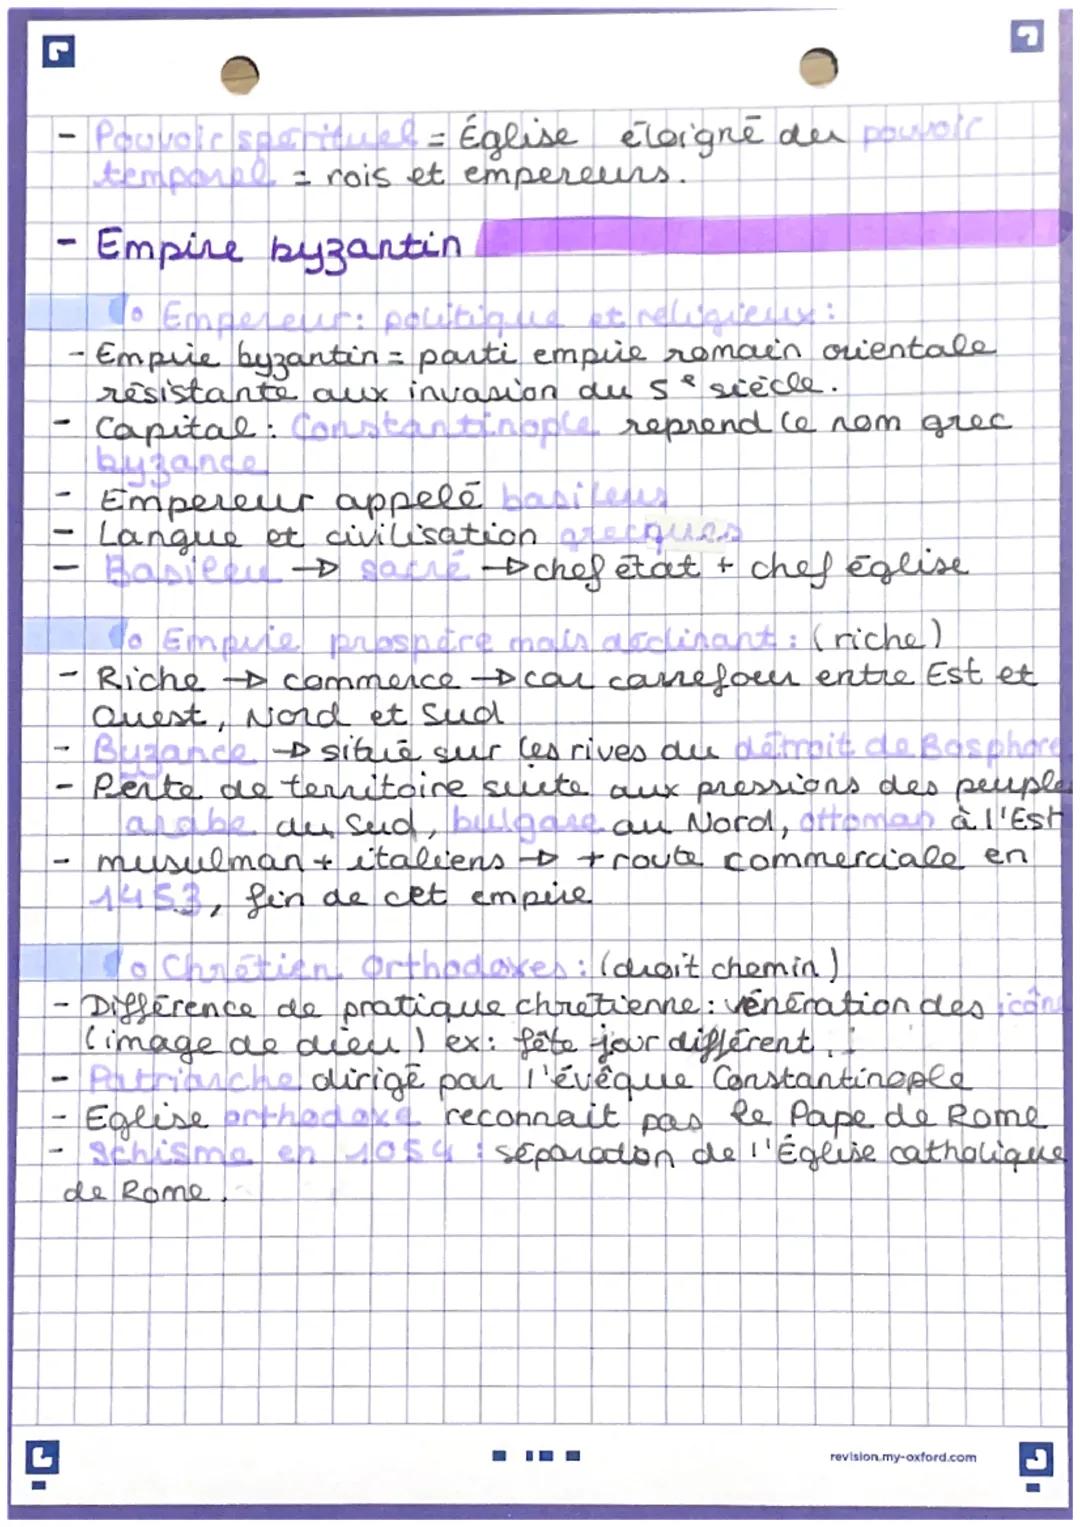 - Pouvoir spirituel = Église éloigné du pouvoir
temporel = rois et empereurs.
- Empire byzantin
1° Empereur: politique et religieux:
- Empire byzantin = parti empire romain orientale
résistante aux invasion du 5e siècle.
- Capital: Constantinople reprend le nom grec
byzance
- Empereur appelé basileus
- Langue et civilisation grecques
- Basileu → sacré → chef état + chef église
1° Empire prospère mais déclinant: (riche)
- Riche → commerce → car carrefour entre Est et
Ouest, Nord et Sud
- Byzance → situé sur les rives du détroit de Bosphore
- Perte de territoire suite aux pressions des peuples
arabe du Sud, bulgare au Nord, ottoman à l'Est
- musulman + italiens → + route commerciale en
1453, fin de cet empire
1° Chrétien Orthodoxes: (droit chemin)
- Différence de pratique chrétienne: vénération des icône
(image de dieu) ex: fête jour différent...
- Patriarche dirigé par l'évêque Constantinople
- Eglise orthodoxe reconnait pas le Pape de Rome
- Schisme en 1054: séparation de l'Église catholique
de Rome.
revision.my-oxford.com